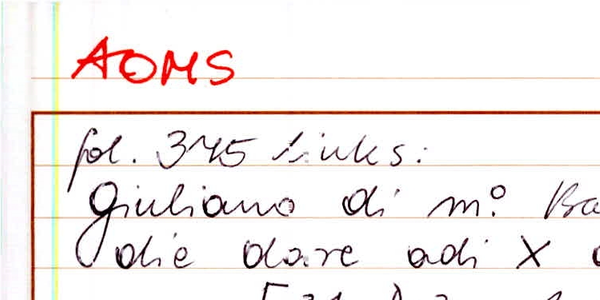 AOMS
fol. 345 links:
Giuliano di m.º Ba
die dare adi X